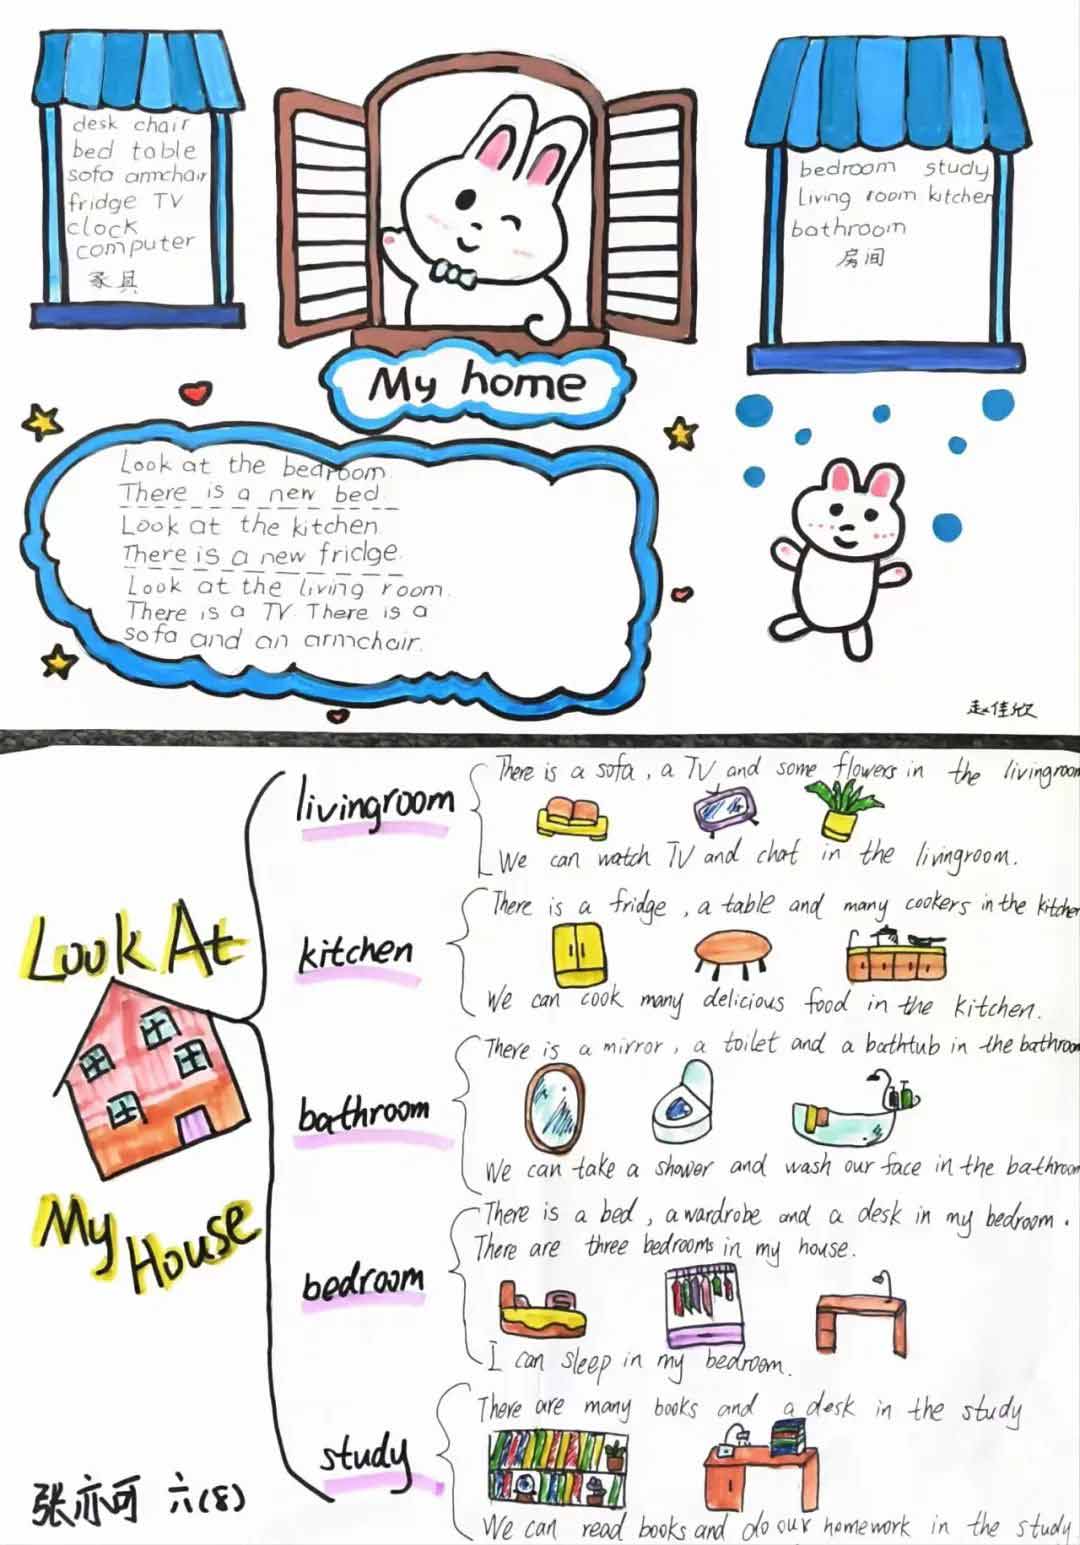 desk chair
bed table
sofa armchair
fridge TV
clock
computer
家具
bedroom study
living room kitchen
bathroom
房间
My home
Look at the bedroom.
There is a new bed.
Look at the kitchen
There is a new fridge.
Look at the living room.
There is a TV. There is a
sofa and an armchair.
赵佳欣
Look At
My House
livingroom
There is a sofa, a TV and some flowers in the livingroom
We can watch TV and chat in the livingroom.
kitchen
There is a fridge, a table and many cookers in the kitchen
We can cook many delicious food in the kitchen.
bathroom
There is a mirror, a toilet and a bathtub in the bathroom
We can take a shower and wash our face in the bathroom
bedroom
There is a bed, a wardrobe and a desk in my bedroom.
There are three bedrooms in my house.
I can sleep in my bedroom.
study
There are many books and a desk in the study
We can read books and do our homework in the study.
张亦可 六(8)